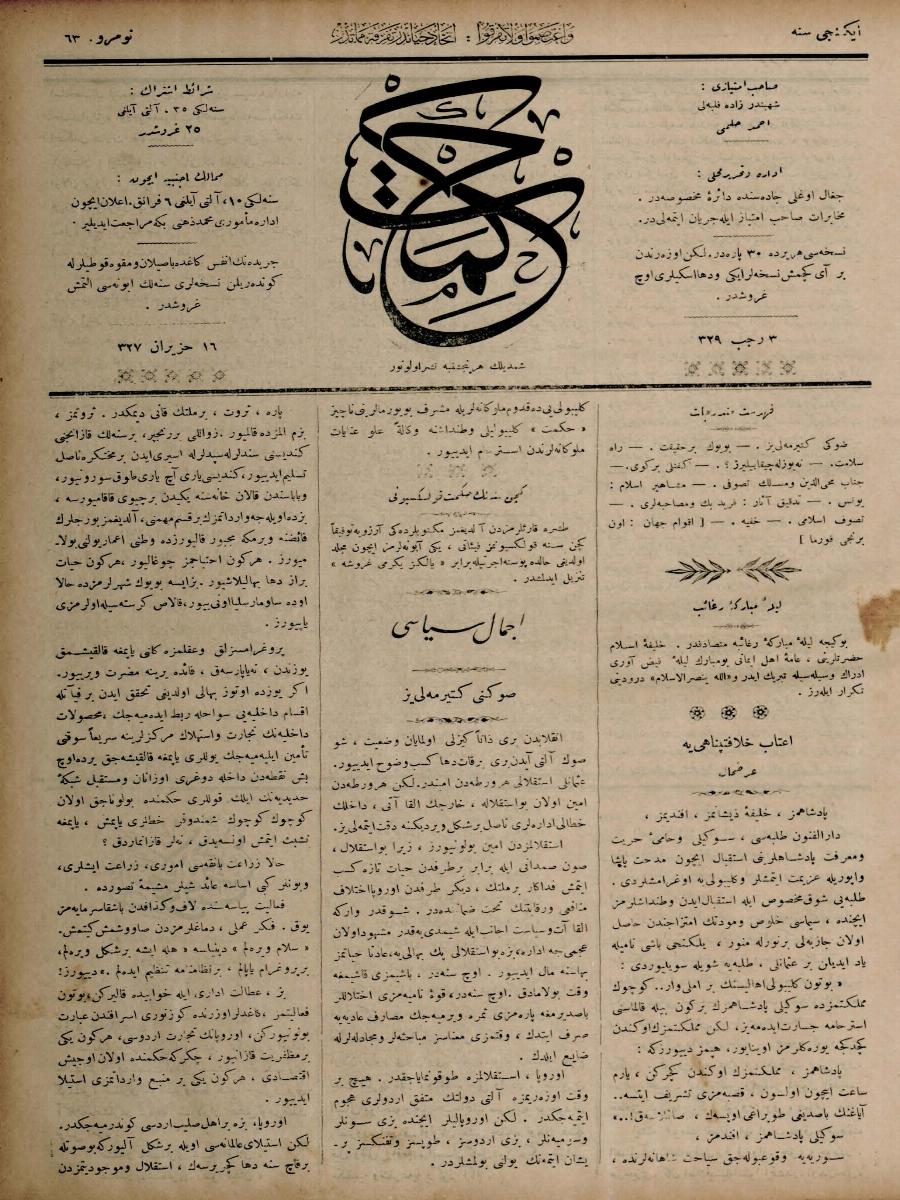 ایکنجی سنه
واعتصموا ولا تفرقوا : اتحاد حیاتدر تفرقه مماتدر
نومرو . ٦٣
صاحب امتیازی :
شهبندر زاده فلبه‌لی
احمد حلمی
اداره و تحریر محلی :
جغال اوغلی جاده‌سنده دائرهٔ مخصوصه‌در .
مخابرات صاحب امتیاز ایله جریان ایتمه‌لی‌در.
نسخه‌سی هر یرده ٣٠ پاره‌در. لکن اوزه‌رندن
بر آی کچمش نسخه‌لر ایکی ودها اسکیلری اوچ
غروشدر .
٣ رجب ٣٢٩
حکمت
شمدیلك هر پنجشنبه نشر اولونور
شرائط اشتراك :
سنه‌لکی ٣٥ ، آلتی آیلغی
٢٥ غروشدر
ممالك اجنبیه ایچون :
سنه‌لکی ١٠، آلتی آیلغی ٦ فرانق. اعلان ایچون
اداره مأموری محمد ذهنی بکه مراجعت ایدیلیر .
جریده‌نك انفس کاغده باصیلان و مقوه قوطیلرله
کوندەریلن نسخه‌لری سنه‌لك ابونه‌سی التمش
غروشدر .
١٦ حزیران ٣٢٧
فهرست مندرجات
صوکی کتیرمه‌لی‌یز . — بویوك بر حقیقت . — راه
سلامت. — نه‌یوزله چیقابیلیرز ؟ . — کفنلی بر کوی. —
جناب محی‌الدین ومسلك تصوفی . — مشاهیر اسلام :
یونس . — تدقیق آثار : فرید بك ومصاحبه‌لری . —
تصوف اسلامی . — خفیه . — [ اقوام جهان : اون
برنجی فورما ]
لیلهٔ مبارکهٔ رغائب
بوکیجه لیلهٔ مبارکهٔ رغائبه متصادفدر . خلیفهٔ اسلام
حضرتلرینی ، عامهٔ اهل ایمانی بومبارك لیلهٔ فیض آوری
ادراك وسیله‌سیله تبریك ایدر و«الله ینصر الاسلام» درودینی
تکرار ایلەرز .
اعتاب خلافتپناهی‌یه
عرضحال
پادشاهمز ، خلیفهٔ ذیشانمز ، افندیمز ،
دارالفنون طلبه‌سی ، سوکیلی وحامیٔ حریت
ومعرفت پادشاهلرینی استقبال ایچون مدحت پاشا
واپوریله عزیمت ایتمشلر وکلیبولی‌یه اوغرامشلردی .
طلبه‌یی شوق مخصوص ایله استقبال ایدن وطنداشلرمز
ایچنده ، سیاسی خلوص ومودتك امتزاجندن حاصل
اولان جاذبه‌لی بر نورله منور ، یلکنجی باشی نامیله
یاد ایدیلن بر عثمانلی ، طلبه‌یه شویله سویلیوردی :
« بوتون کلیبولی اهالیسنك بر املی وار.. کوچوك
مملکتمزده سوکیلی پادشاهمزك برکون بیله قالماسی
استرحامه جسارت ایده‌مه‌یز، لکن مملکتمزك اوکندن
کچدکجه یورەکلرمز اوینایور، هیمز دییورزکه :
پادشاهمز ، مملکتمزك اوکندن کچرکن ، یارم
ساعت ایچون اولسون ، قصبه‌مزی تشریف ایتسه..
آیاغنك باصدیغی طوپراغی اوپسه‌ك ،
سوکیلی پادشاهمز ، افندمز ،
سوریه‌یه وقوعبوله‌جق سیاحت شاهانه‌لرنده ،
کلیبولی‌یی ده قدوم ملوکانه‌لریله مشرف بویورمالرینی ناچیز
« حکمت » کلیبولیلی وطنداشنه وکالةً علو عنایات
ملوکانه‌لرندن استرحام ایدییور .
کچن سنه‌نك حکمت قولکسیونی
طشره قارئلرمزدن آلدیغمز مکتوبلرده‌کی آرزویه توفیقاً
کچن سنه قولکسیونمز فیئاتی ، یکی آبونه‌لرمز ایچون مجلد
اولدیغی حالده پوسته اجرتیله برابر « یالکز یکرمی غروشه »
تنزیل ایدلشدر .
اجمال سیاسی
صوکنی کتیرمه‌لی‌یز
انقلابدن بری ذاتاً کیزلی اولمایان وضعیت ، شو
صوك آلتی آیدن بری بر قات دها کسب وضوح ایدییور.
عثمانلی استقلالی هر ورطه‌دن امیندر. لکن هر ورطه‌دن
امین اولان بو استقلاله ، خارجك القا آتی ، داخلك
خطالی اداره‌لری ناصل بر شکل ویردیکنه دقت ایتمه‌لی‌یز.
استقلالمزدن امین بولونیورز ، زیرا بو استقلال ،
صون صمدانی ایله برابر بر طرفدن حیات تازه کسب
ایتمش فداکار بر ملتك ، دیکر طرفدن اوروپا اختلاف
منافعی ورقابتنك تحت ضماننده‌در . شو قدر وارکه
القا آت وسیاست اجانب ایله شیمدی‌یه‌قدر مشهود اولان
عجمی‌جه اداره، بزه بو استقلالی پك بهالی‌یه، عادتا حیاتمز
بهاسنه مال ایدییور . اوچ سنه‌در ، باشیمزی قاشیمغه
وقت بولامادق .اوچ سنه‌در، قوهٔ نامیه‌مزی اختلاللر
باصدیرمغه پاره‌مزی ثمره ویرمیه‌جك مصارف عادیه‌یه
صرف ایتدك ، وقتمزی معناسز مباحثه‌لر ومجادله‌لرله
ضایع ایلدك .
اوروپا ، استقلالمزه طوقونمایاجقدر . هیچ بر
وقت اوزەریمزه آلتی دولتك متفق اردولری هجوم
ایتمیه‌جکدر . لکن اوروپالیلر ایچنده بزی سونلر
وسومیه‌نلر ، بزی اردوسز ، طوپسز وتفنکسز پر-
یشان ایتمه‌نك یولنی بولمشلردر .
پاره ، ثروت ، بر ملتك قانی دیمکدر . ثروتمز ،
بزم المزده قالمیور . زواللی رنجبر، بر سنه‌لك قازانجنی
کندیسنی سنه‌لرله سیه‌لرله اسیری ایدن بر محتکره ناصل
تسلیم ایدییور، کندیسی یاری آچ یاری طوق سورونیور،
وباباسندن قالان خانه‌سنه یکیدن بر چیوی قاقامیورسه ،
بزده اویله‌جه وارداتمزك بر قسم مهمنی، آلدیغمز بورجلرك
فائضنه ویرمکه مجبور قالیورزده وطنی اعمار یولنی بولا-
میورز . هرکون احتیاجمز چوغالیور ،هرکون حیات
براز دها بهالیلاشیور. بز ایسه بویوك شهرلرمزده حالا
اوده ساومار سلیا اونی‌ییور، قالاص کرسته‌سیله اولرمزی
یاپیورز .
پروغرامسزلق وعقلمزه کلنی یاپمغه قالقیشمق
یوزندن ، نه‌یاپارسه‌ق ، فائده یرینه مضرت ویرییور.
اکر یوزده اوتوز بهالی اولدیغی تحقق ایدن بر فیآتله
اقسام داخلیه‌یی سواحله ربط ایده‌میه‌جك ،محصولات
داخلیه‌نك تجارت واستهلاك مرکزلرینه سریعاً سوقنی
تأمین ایلیه‌میه‌جك یوللری یاپمغه قالقیشه‌جق یرده اوچ
بش نقطه‌دن داخله دوغری اوزانان ومستقبل شبکهٔ
حدیدیه‌نك ایلك قوللری حکمنده بولوناجق اولان
کوچوك کوچوك شمندوفر خطلری یاپمش ، یاپمغه
تشبث ایتمش اولسه‌یدق ، نه‌لر قازانماردق ؟
حالا زراعت بانقه‌سی اموری، زراعت ایشلری،
وبونلر کبی اساسه عائد شیلر مشیمهٔ تصورده .
فعالیت بیاسنده لاف وکذافدن باشقا سرمایه‌مز
یوق . فکر عملی ، دماغلرمزدن صاووشمش کیتمش.
« سلام ویره‌لم » دینیاسه « هله ایشه بر شکل ویره‌لم،
بر پروغرام یاپالم ، بر نظامنامه تنظیم ایده‌لم .» دییورز!
بز ، عطالت اداری ایله خوابیده قالیرکن، بوتون
فعالیتمز ، کاغدلر اوزرنده کوز نوری اسرافندن عبارت
بولونیورکن، اوروپانك تجارت اردوسی، هرکون یکی
بر مظفریت قازانیور ، جکر که حکمنده اولان اوجیش
اقتصادی ، هر کون یکی بر منبع وارداتمزی استیلا
ایدییور .
اوروپا، بزه بر اهل صلیب اردسی کوندرمیه‌جکدر.
لکن استیلای عالمانه‌سی اویله بر شکل آلیورکه بوصورتله
بر قاچ سنه دها کچیریرسه‌ك ، استقلال وموجودیتمزدن